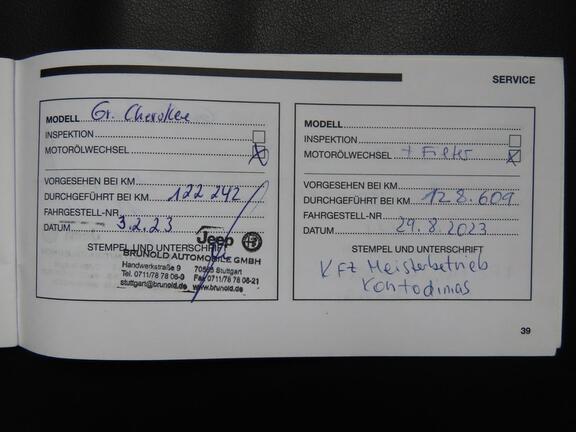 SERVICE
MODELL Gr. Cherokee
INSPEKTION
MOTORÖLWECHSEL X
VORGESEHEN BEI KM
DURCHGEFÜHRT BEI KM 122 242
FAHRGESTELL-NR.
DATUM 3.2.23
STEMPEL UND UNTERSCHRIFT
Jeep
BRUNOLD AUTOMOBILE GMBH
Handwerkstraße 9 Stuttgart
Tel. 0711/78 78 06-0 Fax 0711/78 78 06-21
stuttgart@brunold.de www.brunold.de
MODELL
INSPEKTION
MOTORÖLWECHSEL + Filter X
VORGESEHEN BEI KM
DURCHGEFÜHRT BEI KM 128.609
FAHRGESTELL-NR.
DATUM 29.8.2023
STEMPEL UND UNTERSCHRIFT
KFZ Meisterbetrieb
Kontodimas
39